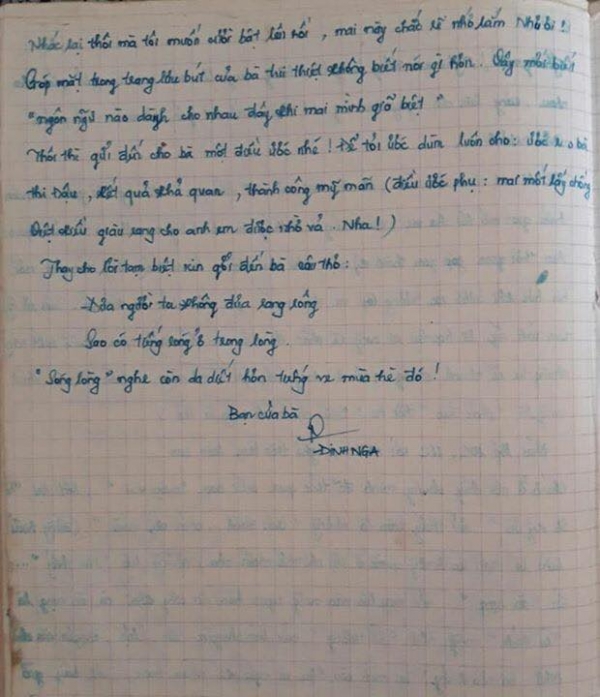 Nhắc lại thôi mà tôi muốn cười bật lên rồi, mai này chắc sẽ nhớ lắm Nhỏ bi!
Góp mặt trong trang lưu bút của bà tui thiệt không biết nói gì hơn. Vậy mới biết
"ngôn ngữ nào dành cho nhau đây khi mai mình giã biệt"
Thôi thì gửi đến cho bà một điều ước nhé! Để tôi ước dùm luôn cho: ước bà
thi Đậu, kết quả khả quan, thành công mỹ mãn (điều ước phụ: mai mốt lấy chồng
Việt kiều giàu sang cho anh em được nhờ vả. Nha!)
Thay cho lời tạm biệt xin gởi đến bà câu thơ:
Đưa người ta không đưa sang sông
Sao có tiếng sóng ở trong lòng.
"Sóng lòng" nghe còn da diết hơn tiếng ve mùa hè đó!
Bạn của bà
ĐINH NGA